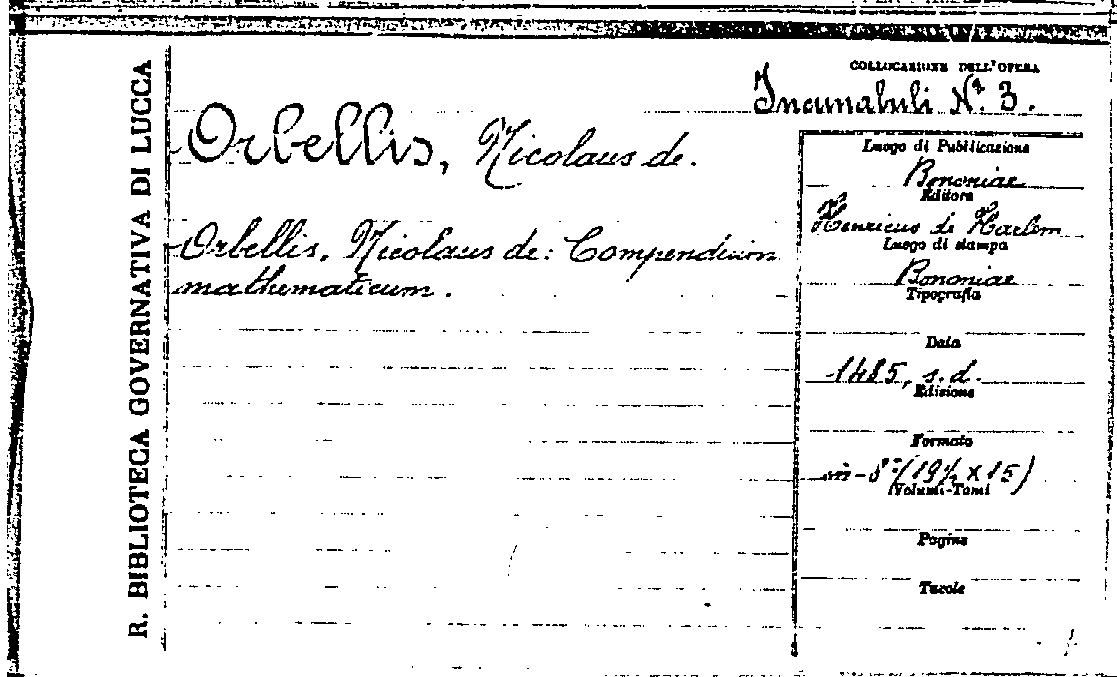 R. BIBLIOTECA GOVERNATIVA DI LUCCA
COLLOCAZIONE DELL'OPERA
Incunabuli N.º 3.
Orbellis, Nicolaus de.
Orbellis, Nicolaus de: Compendium
mathematicum.
Luogo di Pubblicazione
Bononiae
Editore
Henricus de Harlem
Luogo di stampa
Bononiae
Tipografia
Data
1485, s.d.
Edizione
Formato
in-8º (19½ x 15)
Volumi-Tomi
Pagine
Tavole